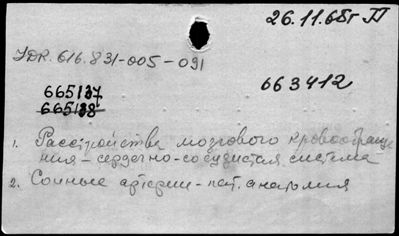 26.11.68г ТТ
УДК. 616.831-005-091
665137
663412
665138
1. Расстройства мозгового кровообраще
ния - сердечно-сосудистая система
2. Сонные артерии - пат. анатомия